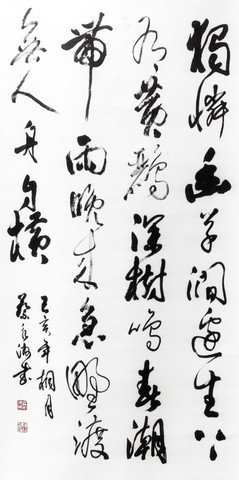 獨憐幽草澗邊生上
有黃鸝深樹鳴春潮
帶雨晚來急野渡
無人舟自橫
亥年桐月
蔡